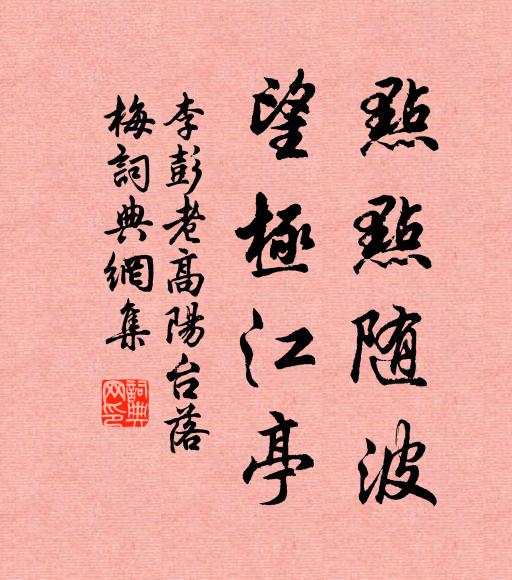 點點随波
望極江亭
李彭老高陽台落
梅詞典網集
詞典
网印